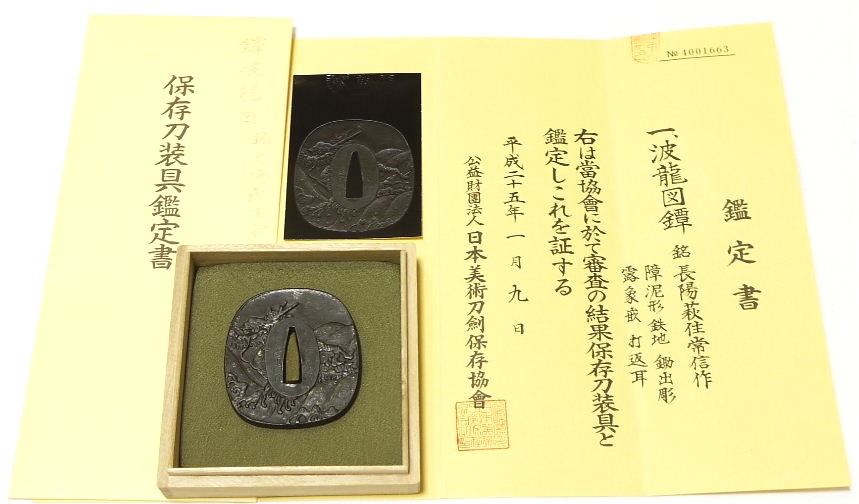 № 4001663
鑑定書
一、波龍図鐔 銘 長陽萩住常信作
障泥形 鉄地 鋤出彫
露象嵌 打返耳
右は當協會に於て審査の結果保存刀装具と
鑑定しこれを証する
平成二十五年一月九日
公益財團法人 日本美術刀劍保存協會
保存刀装具鑑定書